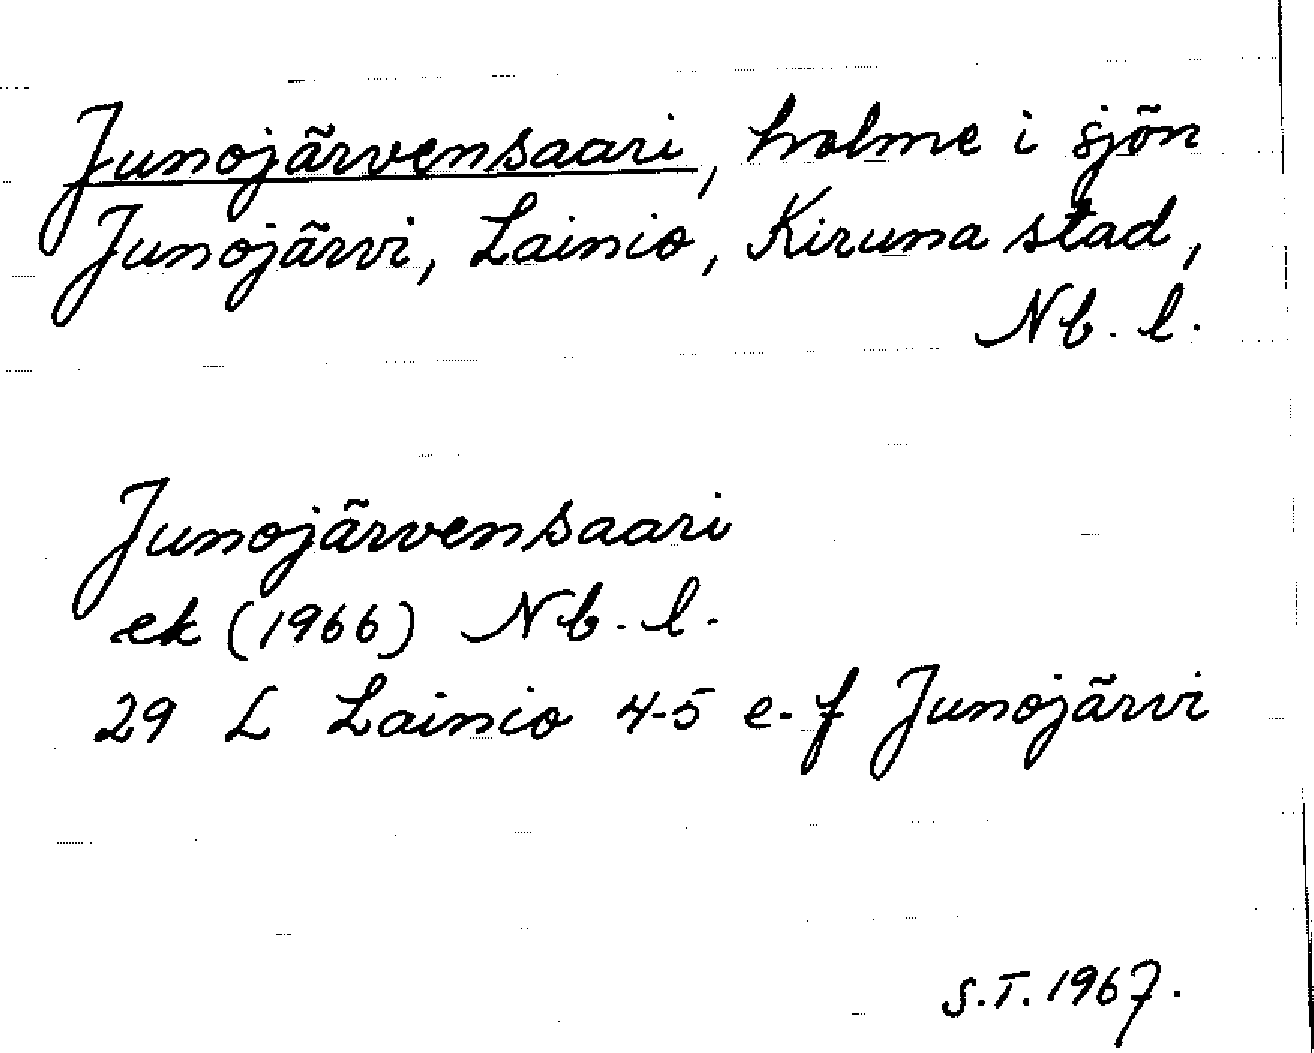 Junojärvensaari, holme i sjön
Junojärvi, Lainio, Kiruna stad,
Nb. l.
Junojärvensaari
ek (1966) Nb. l.
29 L Lainio 4-5 e-f Junojärvi
S.T. 1967.